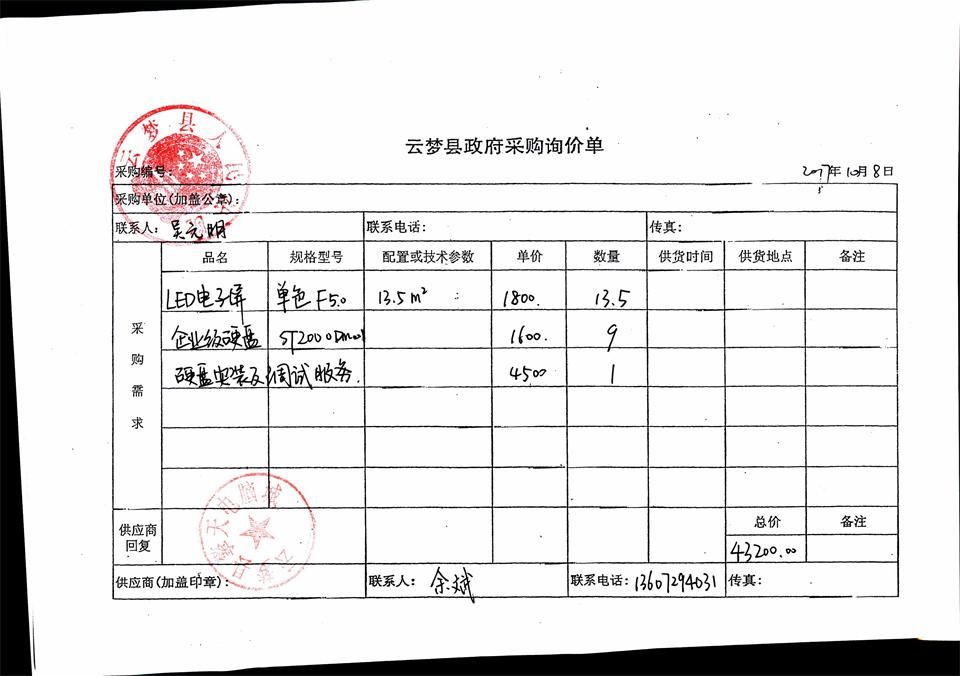 云梦县政府采购询价单
采购编号:
2017年10月8日
采购单位(加盖公章):
联系人: 吴元明 联系电话: 传真:
采购需求
品名 规格型号 配置或技术参数 单价 数量 供货时间 供货地点 备注
LED电子屏 单色F5.0 13.5m² 1800. 13.5
企业级硬盘 ST2000DM001 1600. 9
硬盘安装及调试服务. 4500 1
供应商回复
总价 备注
43200.00
供应商(加盖印章): 联系人: 余斌 联系电话: 13607294031 传真:
云梦县人民
天电脑城